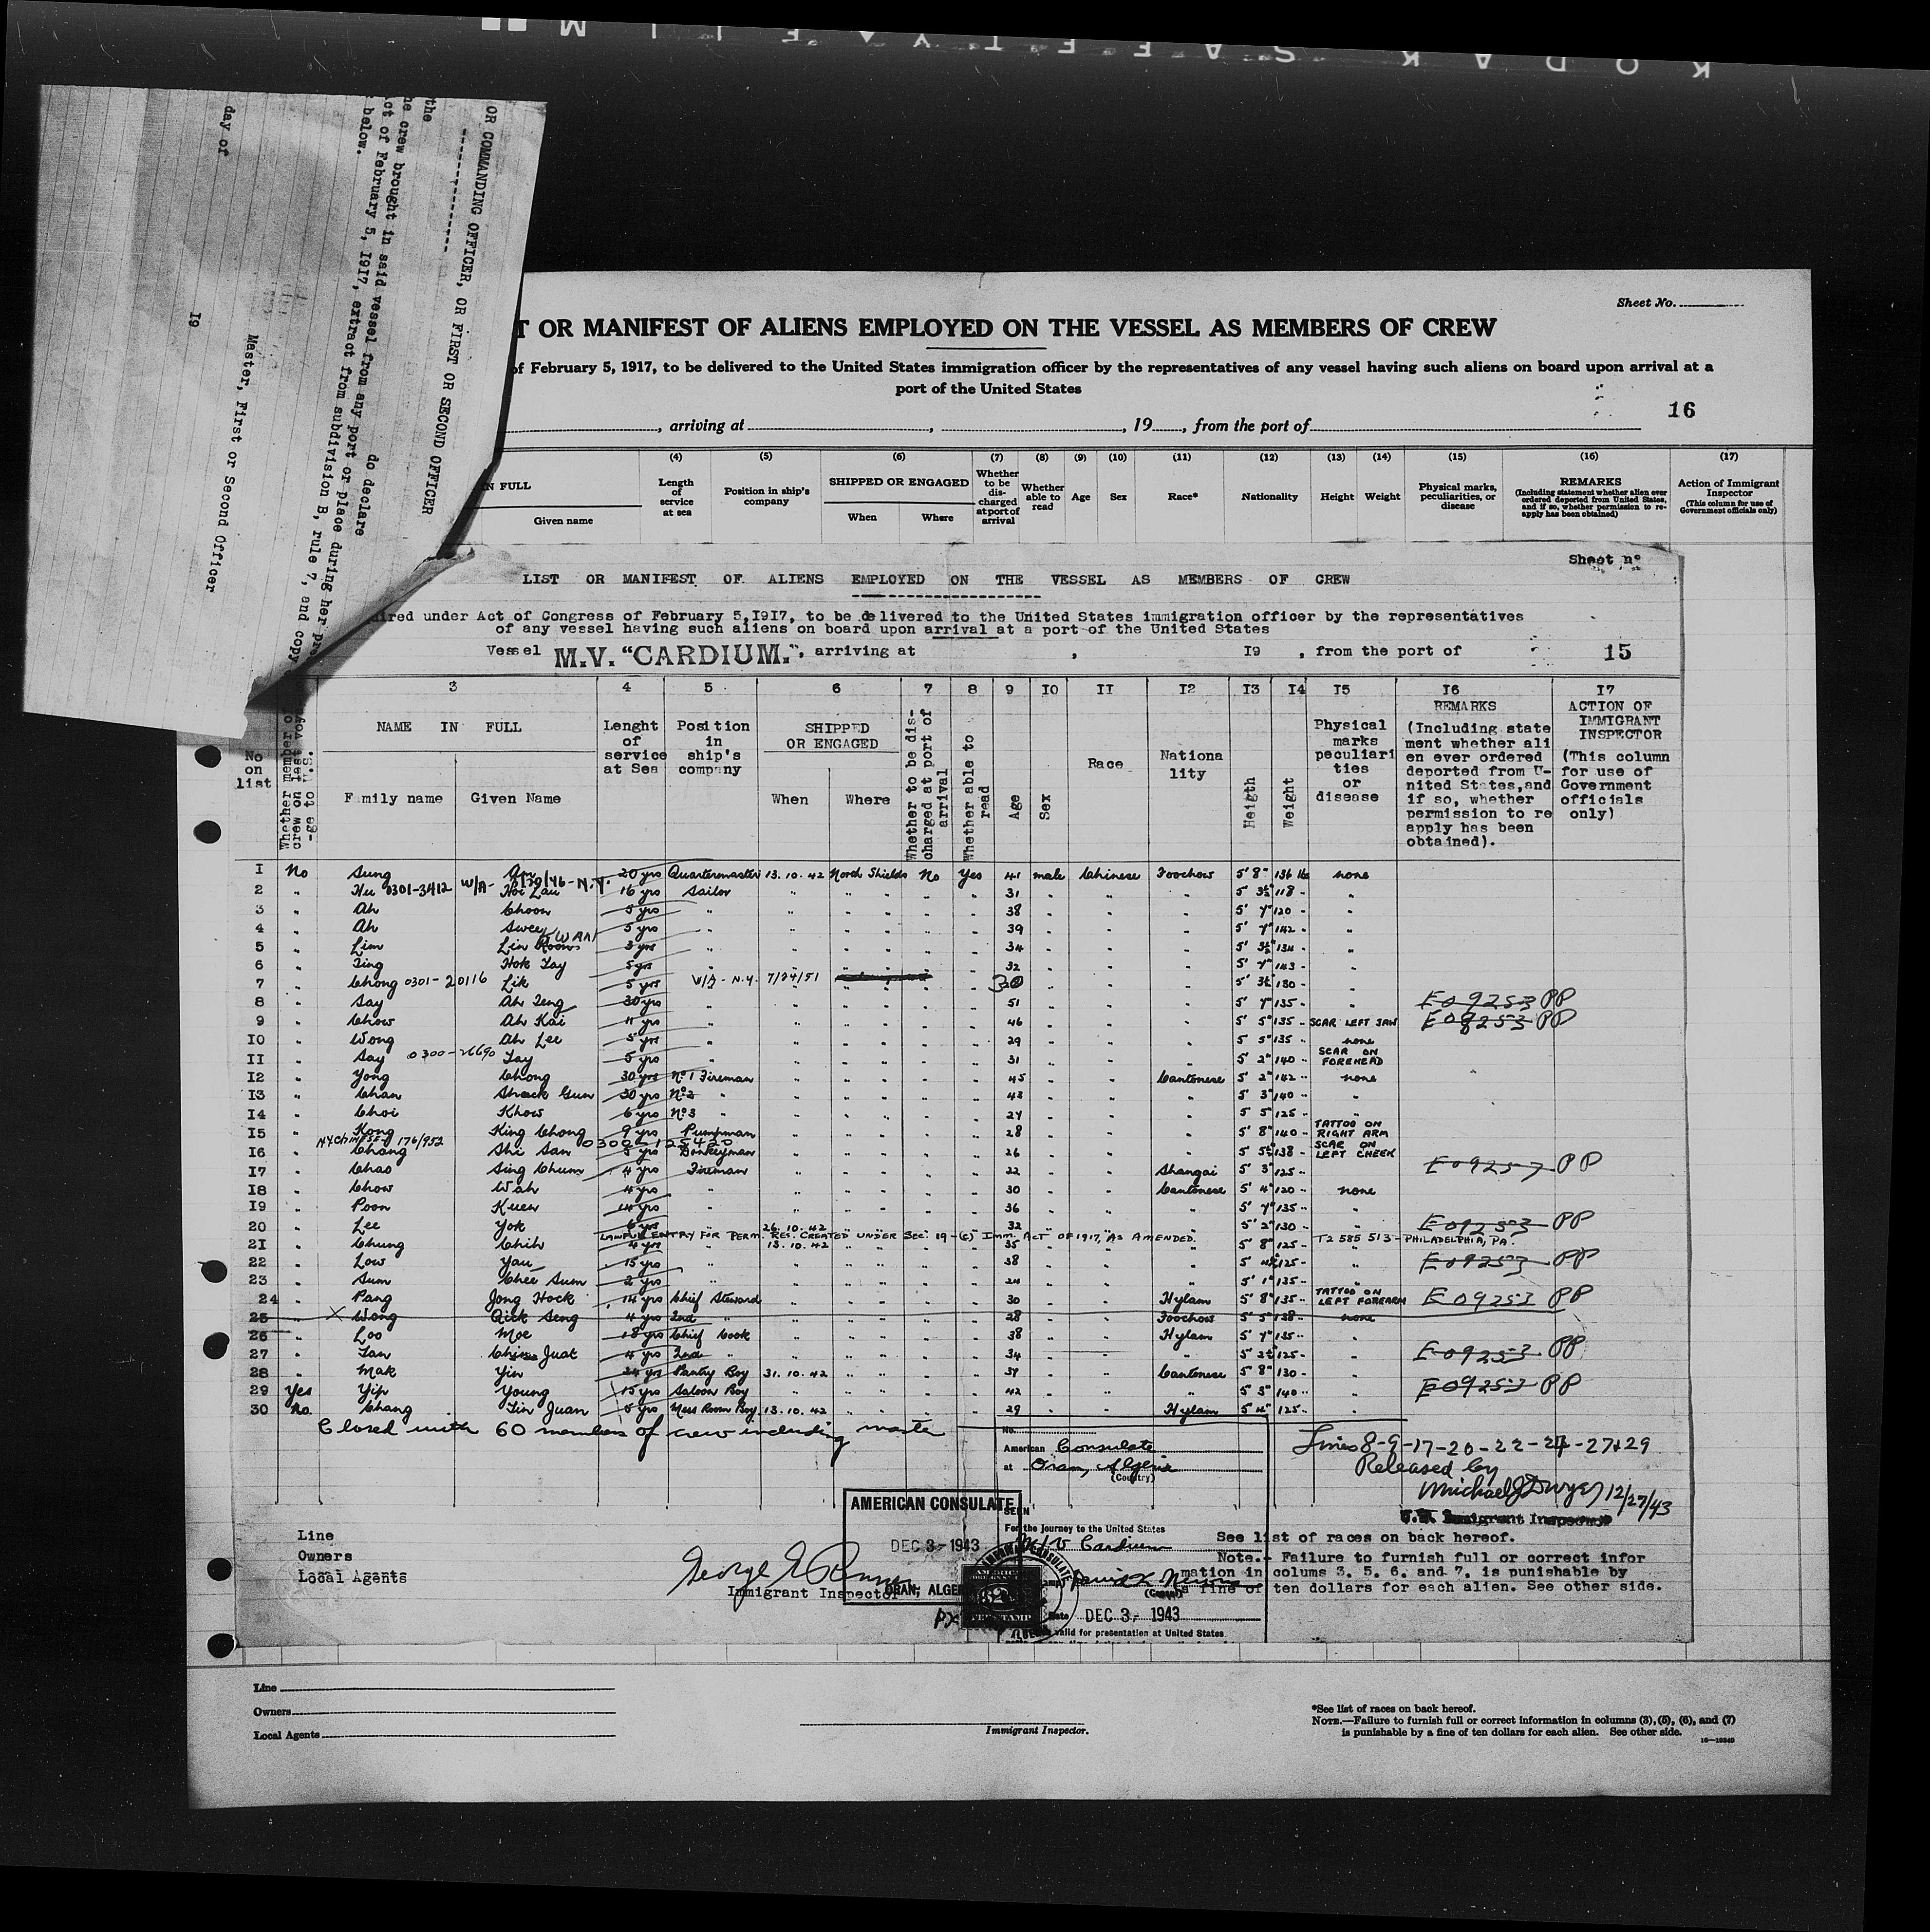 KODAK SAFETY FILM
OR COMMANDING OFFICER, OR FIRST OR SECOND OFFICER
the
do declare
he crew brought in said vessel from any port or place during her
ct of February 5, 1917, extract from subdivision B, rule 7, and copy
below.
day of
19
Master, First or Second Officer
Sheet No.
T OR MANIFEST OF ALIENS EMPLOYED ON THE VESSEL AS MEMBERS OF CREW
of February 5, 1917, to be delivered to the United States immigration officer by the representatives of any vessel having such aliens on board upon arrival at a
port of the United States
16
, arriving at , , 19 , from the port of
(4) (5) (6) (7) (8) (9) (10) (11) (12) (13) (14) (15) (16) (17)
N FULL
Given name
Length of service at sea
Position in ship's company
SHIPPED OR ENGAGED
When Where
Whether to be discharged at port of arrival
Whether able to read
Age Sex Race* Nationality Height Weight
Physical marks, peculiarities, or disease
REMARKS
(Including statement whether alien ever ordered deported from United States, and if so, whether permission to reapply has been obtained)
Action of Immigrant Inspector
(This column for use of Government officials only)
Sheet nº
LIST OR MANIFEST OF ALIENS EMPLOYED ON THE VESSEL AS MEMBERS OF CREW
ired under Act of Congress of February 5,I9I7, to be delivered to the United States immigration officer by the representatives
of any vessel having such aliens on board upon arrival at a port of the United States
Vessel M.V. "CARDIUM.", arriving at , I9 , from the port of 15
3 4 5 6 7 8 9 I0 II I2 I3 I4 I5 I6 I7
No on list
Whether member of crew on last voya-ge to U.S.
NAME IN FULL
Family name Given Name
Lenght of service at Sea
Position in ship's company
SHIPPED OR ENGAGED
When Where
Whether to be dis-charged at port of arrival
Whether able to read
Age
Sex
Race
Nationa lity
Heigth
Weight
Physical marks peculiari ties or disease
REMARKS
(Including state ment whether ali en ever ordered deported from U-nited States,and if so, whether permission to re apply has been obtained).
ACTION OF IMMIGRANT INSPECTOR
(This column for use of Government officials only)
I No Sung 20 yrs Quartermaster 13.10.42 North Shields No Yes 41 male Chinese Foochow 5' 8" 136 lbs none
2 " Hu 0301-3412 W/A- 7/30/46-N.Y. Hoi Lau 16 yrs Sailor " " " " 31 " " " 5' 3½" 118 " "
3 " Ah Choon 5 yrs " " " " " 38 " " " 5' 7" 120 " "
4 " Ah Swee 5 yrs " " " " " 39 " " " 5' 7" 142 " "
5 " Lim Lin Room WAN 3 yrs " " " " " 34 " " " 5' 3½" 134 " "
6 " Ting Hok Tay 5 yrs " " " " " 32 " " " 5' 7" 143 " "
7 " Chong 0301-20116 Lik 5 yrs V/A - N.Y. 7/24/51 " " 30 " " " 5' 3½" 130 " "
8 " Say Ah Teng 30 yrs " " " " " 51 " " " 5' 7" 135 " " E09253 PP
9 " Chow Ah Kai 11 yrs " " " " " 46 " " " 5' 5" 135 " SCAR LEFT JAW E09253 PP
I0 " Wong Ah Lee 5 yrs " " " " " 29 " " " 5' 5" 135 " none
II " Say 0300-26690 Tay 5 yrs " " " " " 31 " " " 5' 2" 140 " SCAR ON FOREHEAD
I2 " Yong Chong 30 yrs Nº1 Fireman " " " " 45 " " Cantonese 5' 2" 142 " none
I3 " Chan Shack Gun 30 yrs Nº2 " " " " " 43 " " " 5' 3" 140 " "
I4 " Choi Khow 6 yrs Nº3 " " " " " 27 " " " 5' 5" 125 " "
I5 " Kong King Chong 9 yrs Pumpman " " " " 28 " " " 5' 8" 140 " TATTOO ON RIGHT ARM
0300-125420
I6 " Chang Shi San 5 yrs Donkeyman " " " " 26 " " " 5' 5½" 138 " SCAR ON LEFT CHEEK
I7 " Chao Sing Chum 4 yrs Fireman " " " " 22 " " Shangai 5' 3" 125 " E09257 PP
I8 " Chow Wah 4 yrs " " " " " 30 " " Cantonese 5' 4" 120 " none
I9 " Poon Kuen 14 yrs " " " " " 36 " " " 5' 7" 135 " "
20 " Lee Yok 6 yrs " 26.10.42 " " " 32 " " " 5' 2" 130 " " E09253 PP
LAWFUL ENTRY FOR PERM. RES. CREATED UNDER SEC. 19-(c) IMM. ACT OF 1917, AS AMENDED. T2 585 513 - PHILADELPHIA, PA.
2I " Chung Chih 4 yrs " 13.10.42 " " " 35 " " " 5' 8" 125 " "
22 " Low Yau 15 yrs " " " " " 38 " " " 5' 4½" 125 " " E09253 PP
23 " Sum Chee Sum 2 yrs " " " " " 24 " " " 5' 1" 135 " "
24 " Pang Jong Hock 14 yrs Chief Steward " " " " 30 " " Hylam 5' 8" 135 " TATTOO ON LEFT FOREARM E09253 PP
25 " X Wong Pick Seng 4 yrs 2nd " " " " " 28 " " Foochow 5' 5" 128 " none
26 " Loo Moe 18 yrs Chief Cook " " " " 38 " " Hylam 5' 7" 135 " "
27 " Tan Chin Juat 4 yrs 2nd " " " " " 34 " " " 5' 2½" 125 " " E09253 PP
28 " Mak Yin 24 yrs Pantry Boy 31.10.42 " " " 37 " " Cantonese 5' 8" 130 " "
29 Yes Yip Young 15 yrs Saloon Boy " " " " 42 " " " 5' 3" 140 " " E09253 PP
30 No. Chang Tin Juan 5 yrs Mess Room Boy 13.10.42 " " " 29 " " Hylam 5' 4" 125 " "
Closed with 60 members of crew including master
No.
American Consulate
at Oran, Algeria
(Country)
Lines 8-9-17-20-22-24-27+29
Released by
Michael J Dwyer 12/27/43
U.S. Immigrant Inspector
AMERICAN CONSULATE
DEC 3 - 1943
ORAN, ALGERIA
SEEN
For the journey to the United States
M/V Cardium
(Consul)
Date DEC 3 - 1943
valid for presentation at United States
Line
Owners
Local Agents
Immigrant Inspector
See list of races on back hereof.
Note.- Failure to furnish full or correct infor
mation in colums 3. 5. 6. and 7. is punishable by
a fine of ten dollars for each alien. See other side.
Line
Owners
Local Agents
Immigrant Inspector.
*See list of races on back hereof.
NOTE.—Failure to furnish full or correct information in columns (3), (5), (6), and (7)
is punishable by a fine of ten dollars for each alien. See other side.
16—19349